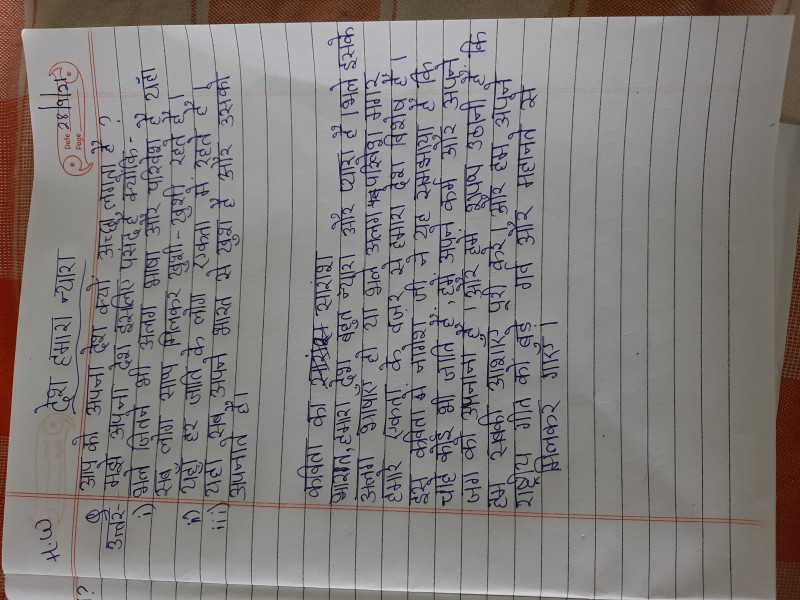 H.W
Date 28/9/21
Page
देश हमारा न्यारा
Q आप को अपना देश क्यों अच्छा लगता है ?
उत्तर मुझे अपना देश इसलिए पसंद है क्योंकि -
i) भले जितने भी अलग भाषा और परिवेश हैं यहाँ
सब लोग साथ मिलकर खुशी - खुशी रहते हैं ।
ii) यहाँ हर जाति के लोग एकता में रहते हैं ।
iii) यहाँ सब अपने भारत से खुश हैं और उसको
अपनाते हैं।
कविता का सारांश
भारत, हमारा देश बहुत न्यारा और प्यारा है । भले इसके
अलग भाषाएँ हो या भले अलग परिवेश मगर
हमारे एकता के वजह से हमारा देश विशेष है ।
इस कविता में जी ने यह समझाया है कि
चाहे कोई भी जाति है, हमें अपने कर्म और अपने
जग को अपनाना है । और हमें शपथ उठानी है कि
हम सबकी आशाएँ पूरी करे । और हम अपने
राष्ट्रीय गीत को बड़े गर्व और महानते से
मिलकर गाएँ ।
?